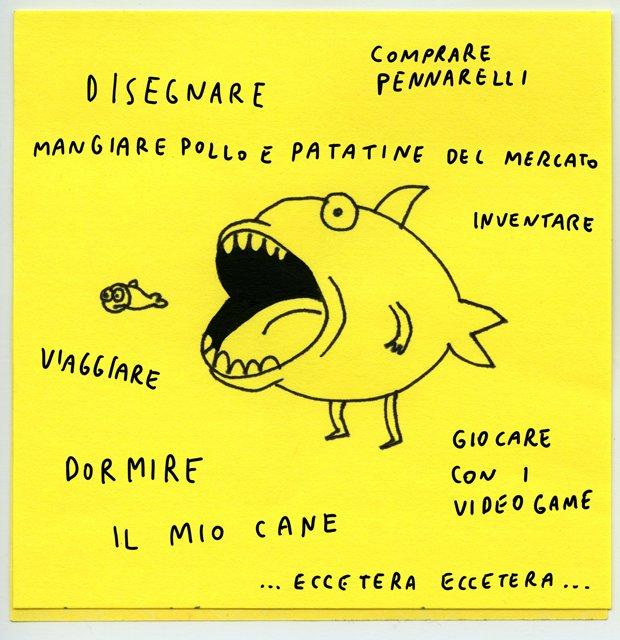 COMPRARE
PENNARELLI
DISEGNARE
MANGIARE POLLO E PATATINE DEL MERCATO
INVENTARE
VIAGGIARE
GIOCARE
CON I
VIDEOGAME
DORMIRE
IL MIO CANE
...ECCETERA ECCETERA...